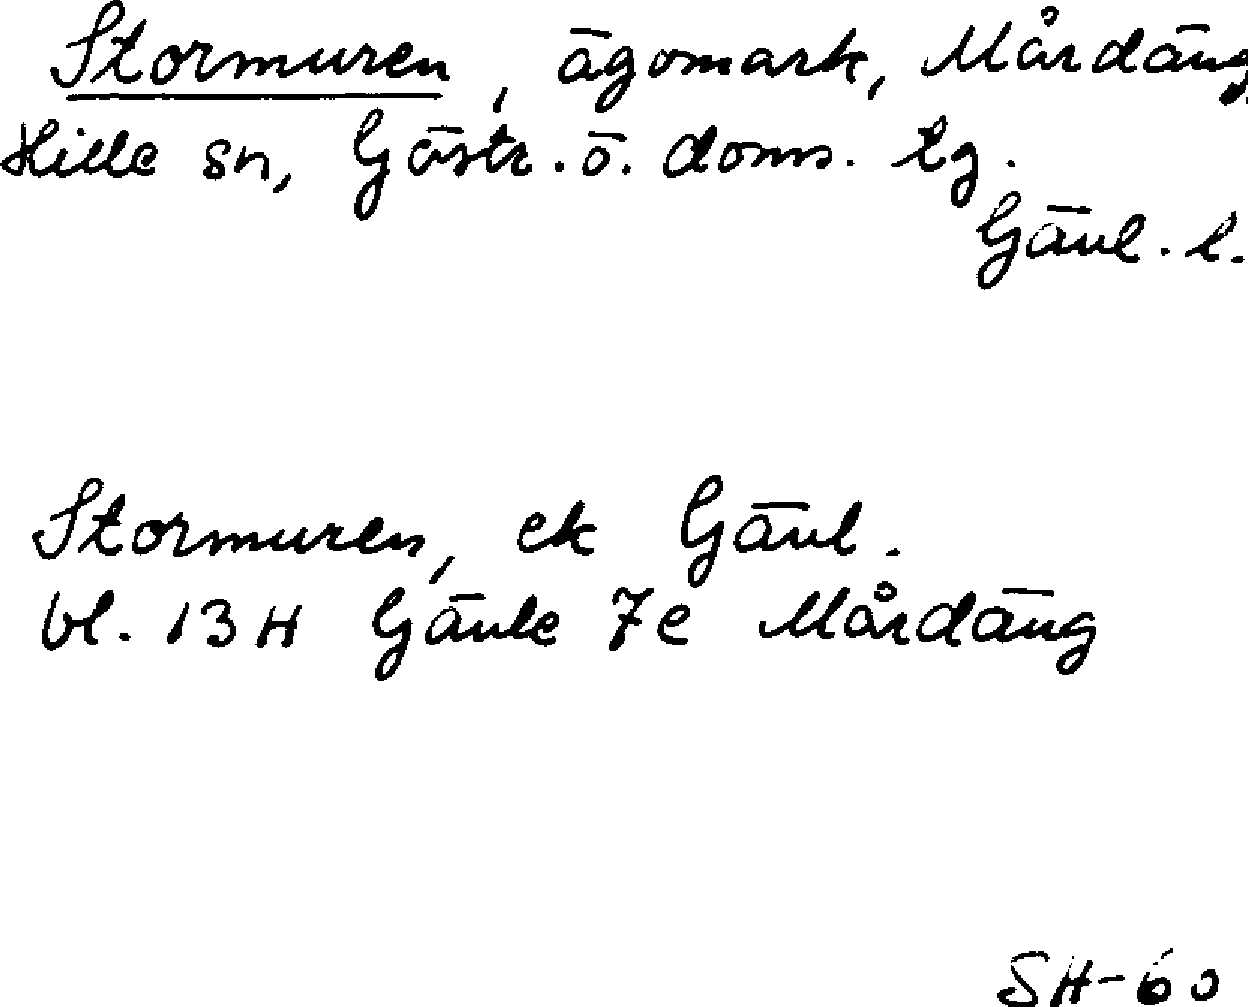 Stormuren, ägomark, Mårdäng,
Hille sn, Gästr. ö. doms. tg.
Gävl. l.
Stormuren, ek Gävl.
bl. 13H Gävle 7e Mårdäng
SH-60